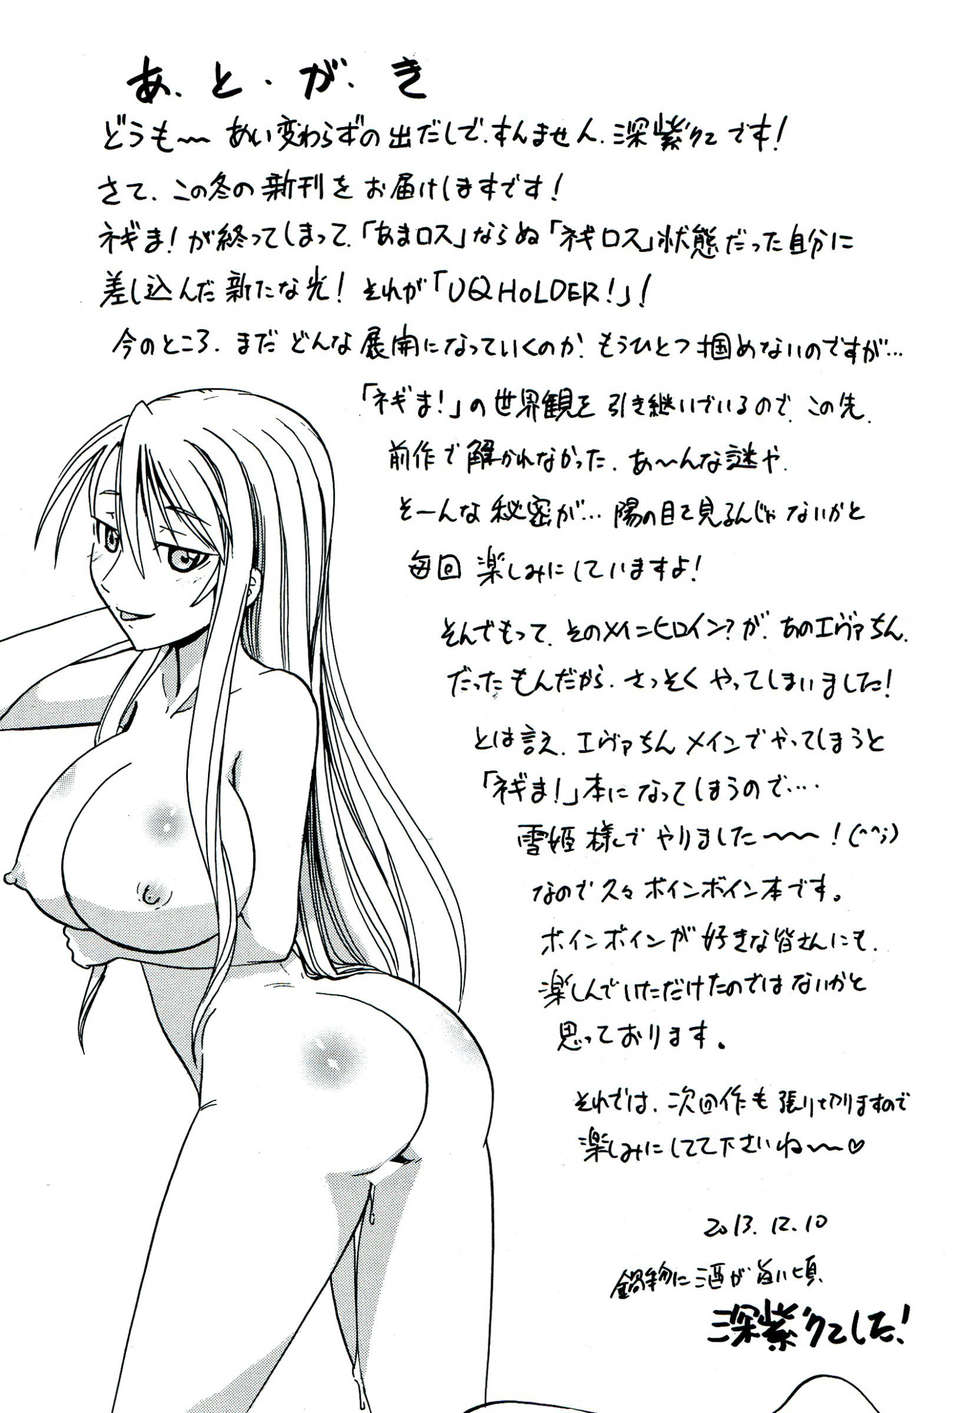 あ・と・が・き
どうも〜あい変わらずの出だしで、すんません、深紫クニです!
さて、この冬の新刊をお届けしますです!
ネギま!が終ってしまって、「あまロス」ならぬ「ネギロス」状態だった自分に
差し込んだ新たな光!それが「UQ HOLDER!」!
今のところ、まだどんな展開になっていくのか、もうひとつ掴めないのですが…
「ネギま!」の世界観を引き継いでいるので、この先、
前作で解かれなかった、あ〜んな謎や、
そーんな秘密が…陽の目を見るんじゃないかと
毎回楽しみにしていますよ!
そんでもって、そのメインヒロイン?が、あのエヴァちん、
だったもんだから、さっそくやってしまいました!
とは言え、エヴァちんメインでやってしまうと
「ネギま!」本になってしまうので…・
雪姫様でやりました〜〜!(^^;)
なので久々ボインボイン本です。
ボインボインが好きな皆さんにも、
楽しんでいただけたのではないかと
思っております。
それでは、次回作も張り切りますので
楽しみにしてて下さいね〜〜♡
2013.12.10
鍋物に酒が旨い頃、
深紫クニでした!